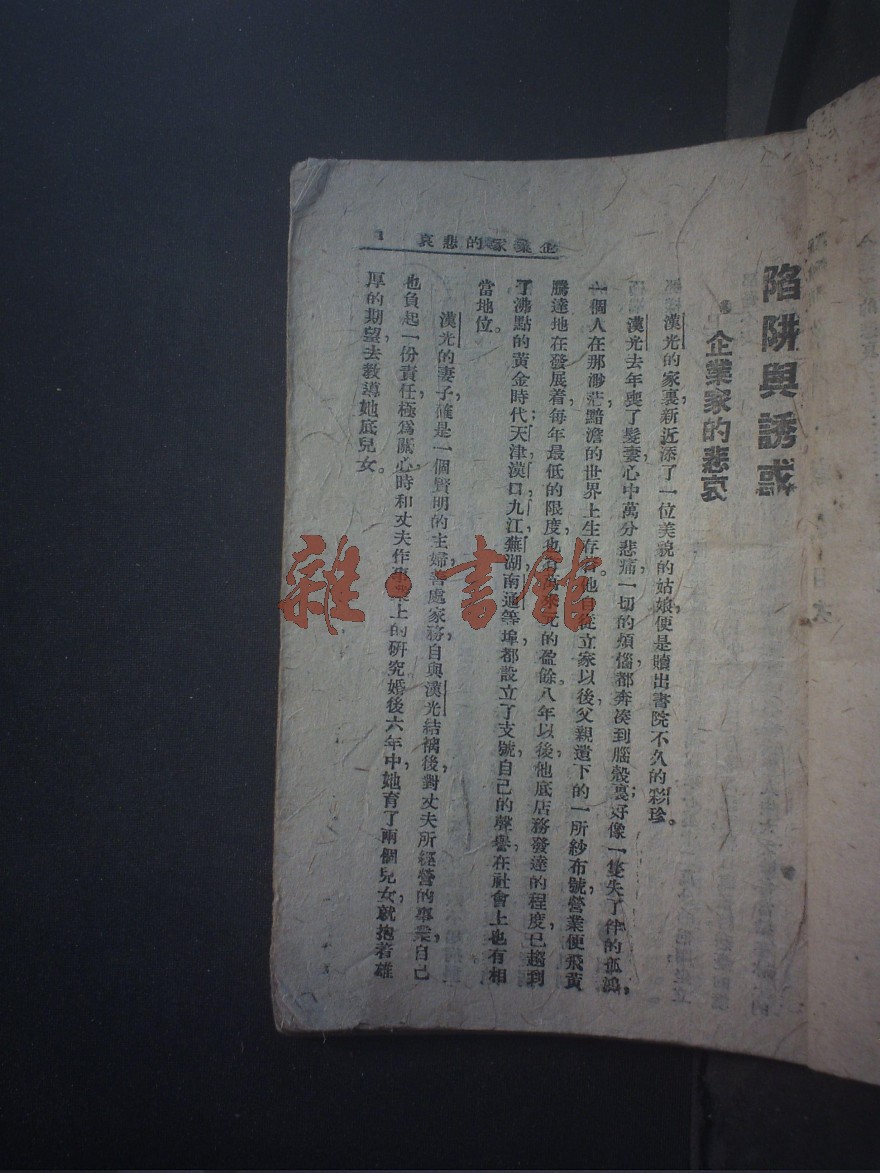 陷阱與誘惑
企業家的悲哀
漢光的家裏新近添了一位美貌的姑娘，便是贖出書院不久的彩珍。
漢光去年喪了髮妻，心中萬分悲痛，一切的煩惱都奔湊到腦殼裏；好像一隻失了伴的孤鴻，
一個人在那渺茫黯澹的世界上生存着。他自從立家以後，父親遺下的一所紗布號，營業便飛黃
騰達地在發展着，每年最低的限度，也有元的盈餘。八年以後，他底店務發達的程度，已趨到
了沸點的黃金時代；天津，漢口，九江，蕪湖，南通等埠，都設立了支號，自己的聲譽在社會上也有相
當地位。
漢光的妻子，確是一個賢明的主婦，善處家務，自與漢光結褵後，對丈夫所經營的事業，自己
也負起一份責任，極爲關心，時和丈夫作事業上的研究，婚後六年中，她育了兩個兒女，就抱着雄
厚的期望，去教導她底兒女。
企業家的悲哀 1
雜·書館